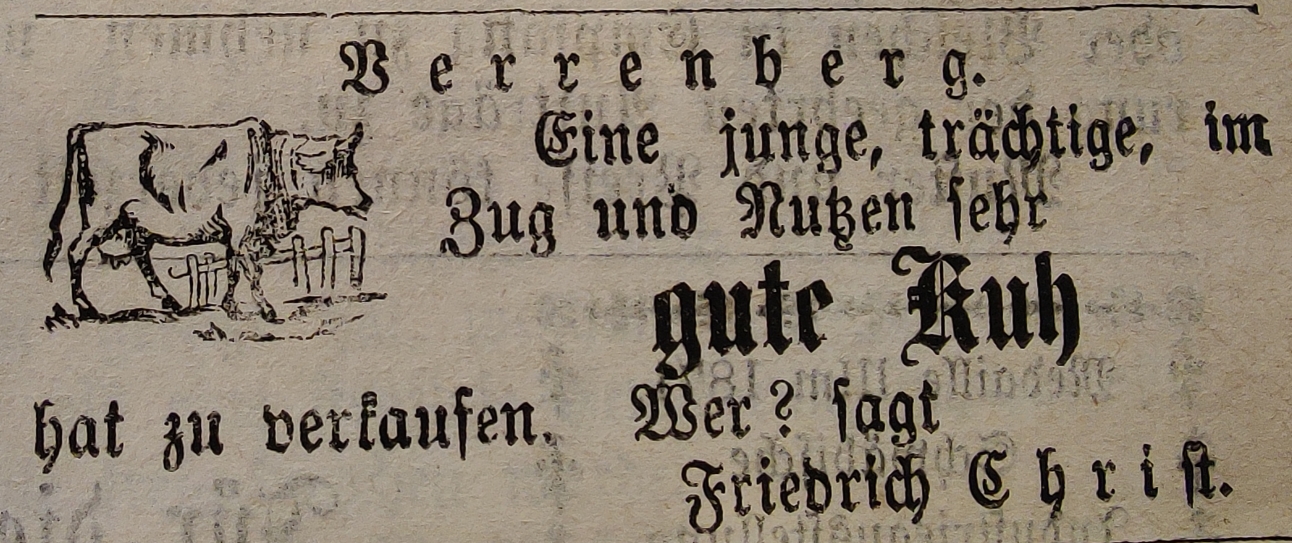 Verrenberg.
Eine junge, trächtige, im
Zug und Nutzen sehr
gute Kuh
hat zu verkaufen. Wer? sagt
Friedrich Christ.